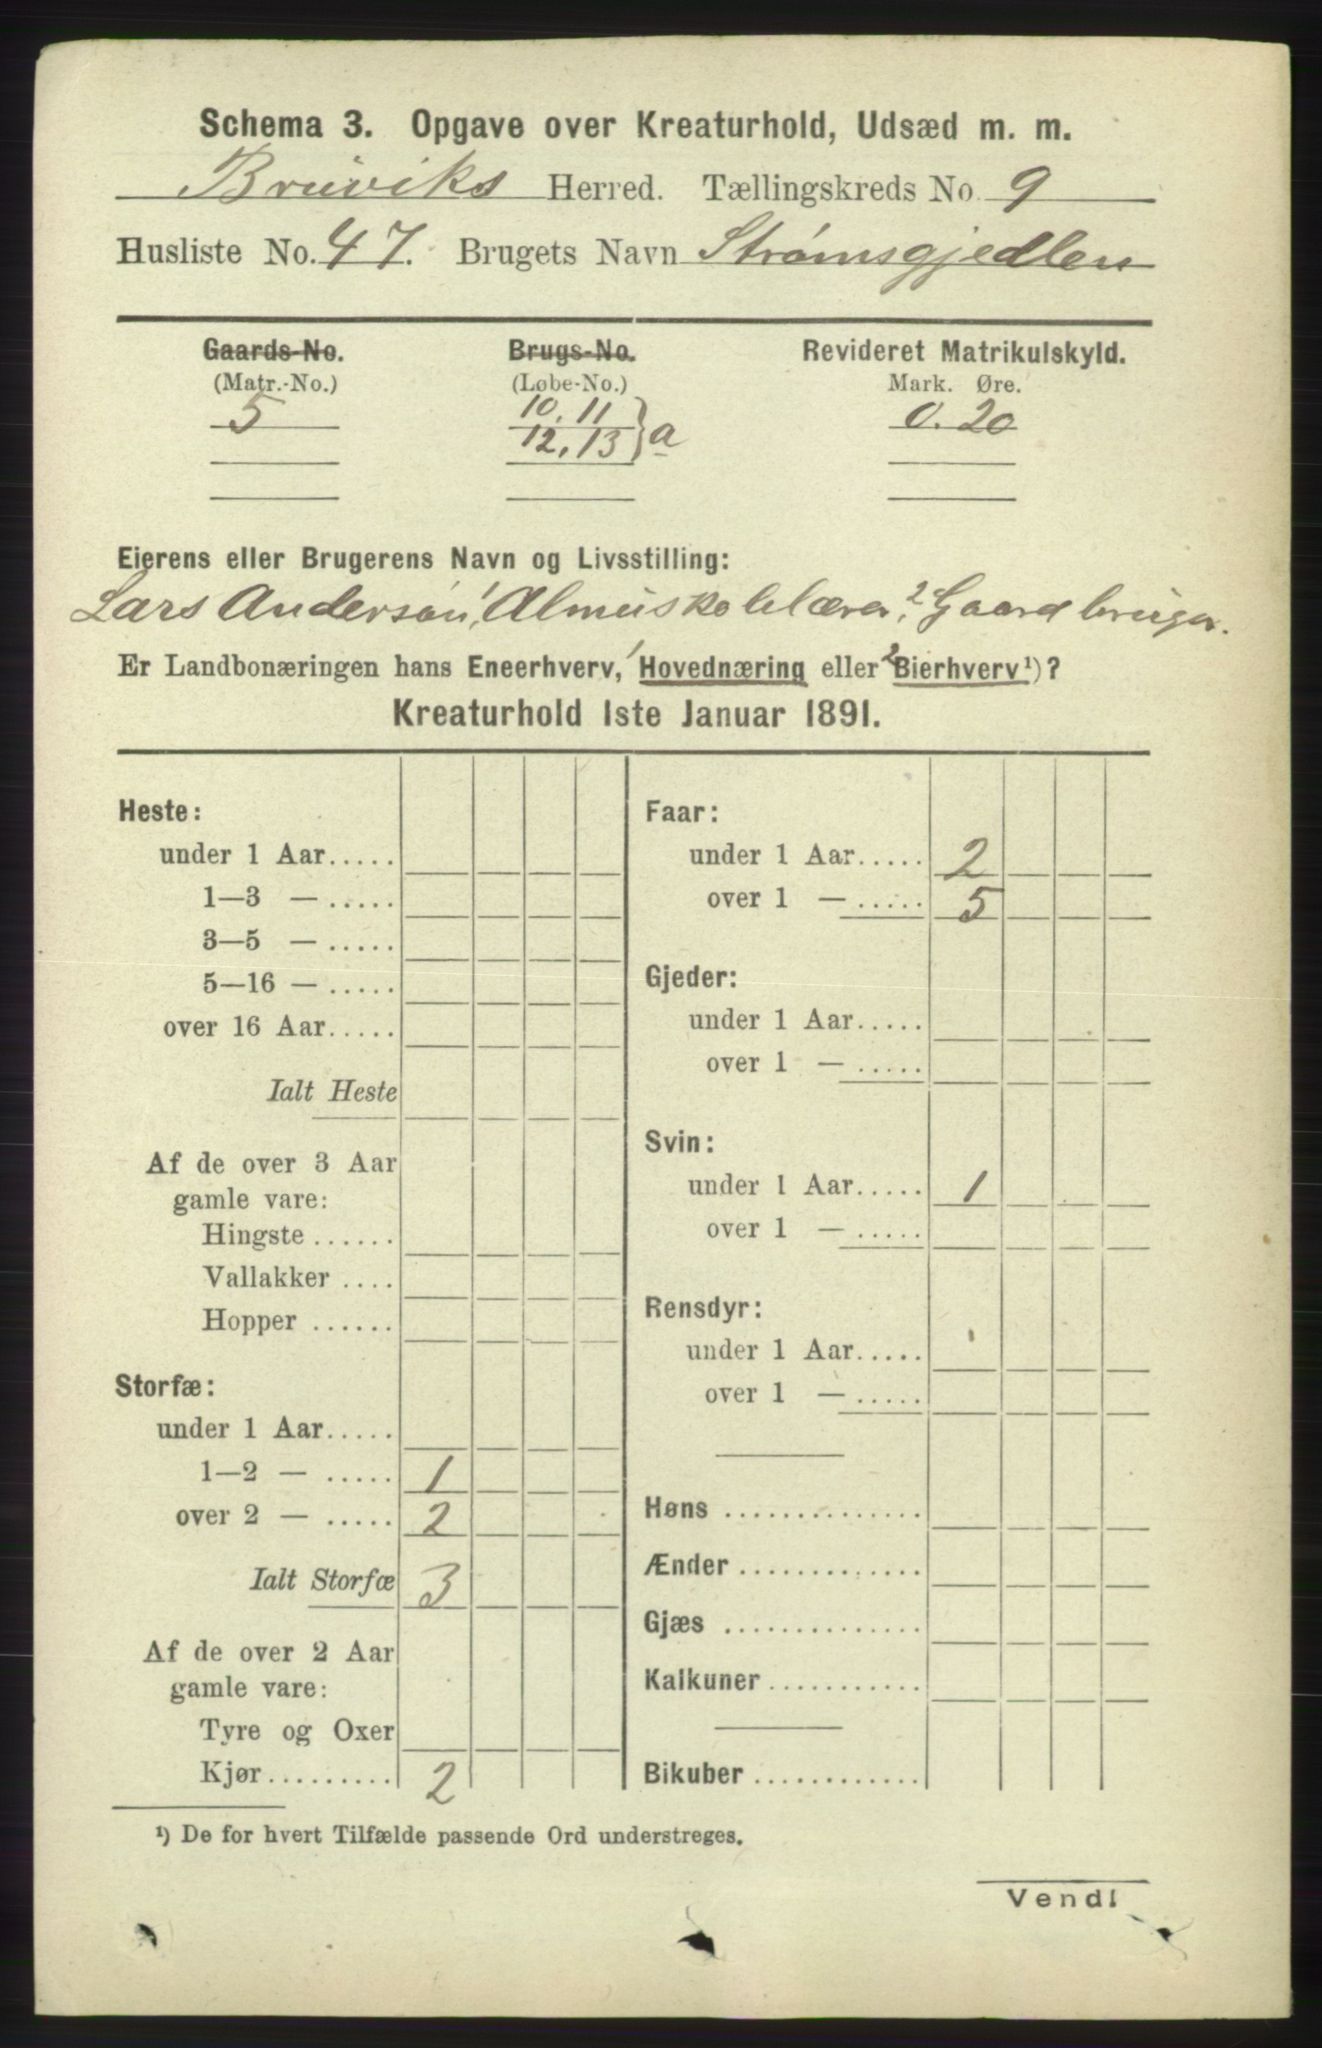 Schema 3. Opgave over Kreaturhold, Udsæd m. m.
Bruviks Herred. Tællingskreds No. 9
Husliste No. 47. Brugets Navn Strømsgjedlen
Gaards-No. Brugs-No. Revideret Matrikulskyld.
(Matr.-No.) (Løbe-No.) Mark. Øre.
5 10, 11 0. 20
12, 13 } a
Eierens eller Brugerens Navn og Livsstilling:
Lars Anderson, 1 Almuskolelærer, 2 Gaardbruger.
Er Landbonæringen hans Eneerhverv, 1 Hovednæring eller 2 Bierhverv¹)?
Kreaturhold 1ste Januar 1891.
Heste:
under 1 Aar.....
1—3 — .....
3—5 — .....
5—16 — .....
over 16 Aar.....
Ialt Heste
Af de over 3 Aar
gamle vare:
Hingste ......
Vallakker ....
Hopper ......
Storfæ:
under 1 Aar.....
1—2 — ..... 1
over 2 — ..... 2
Ialt Storfæ 3
Af de over 2 Aar
gamle vare:
Tyre og Oxer
Kjør......... 2
Faar:
under 1 Aar..... 2
over 1 — ..... 5
Gjeder:
under 1 Aar.....
over 1 — .....
Svin:
under 1 Aar..... 1
over 1 — .....
Rensdyr:
under 1 Aar.....
over 1 — .....
Høns ..............
Ænder .............
Gjæs ..............
Kalkuner ...........
Bikuber ............
¹) De for hvert Tilfælde passende Ord understreges.
Vend!